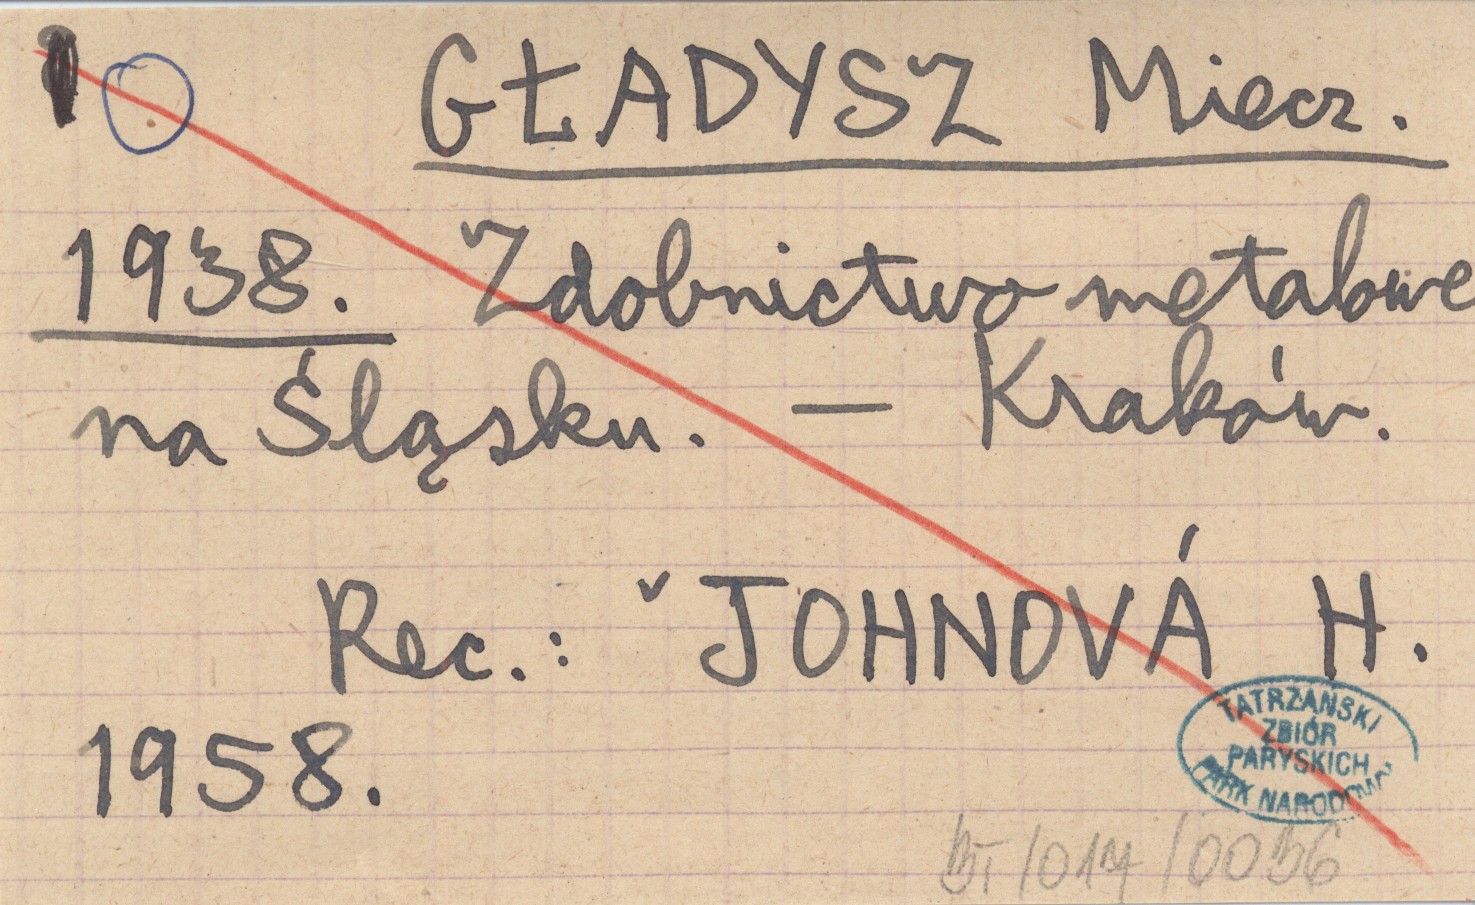 GŁADYSZ Miecz.
1938. Zdobnictwo metalowe
na Śląsku. — Kraków.
Rec.: JOHNOVÁ H.
1958.
TATRZAŃSKI
ZBIÓR
PARYSKICH
PARK NARODOWY